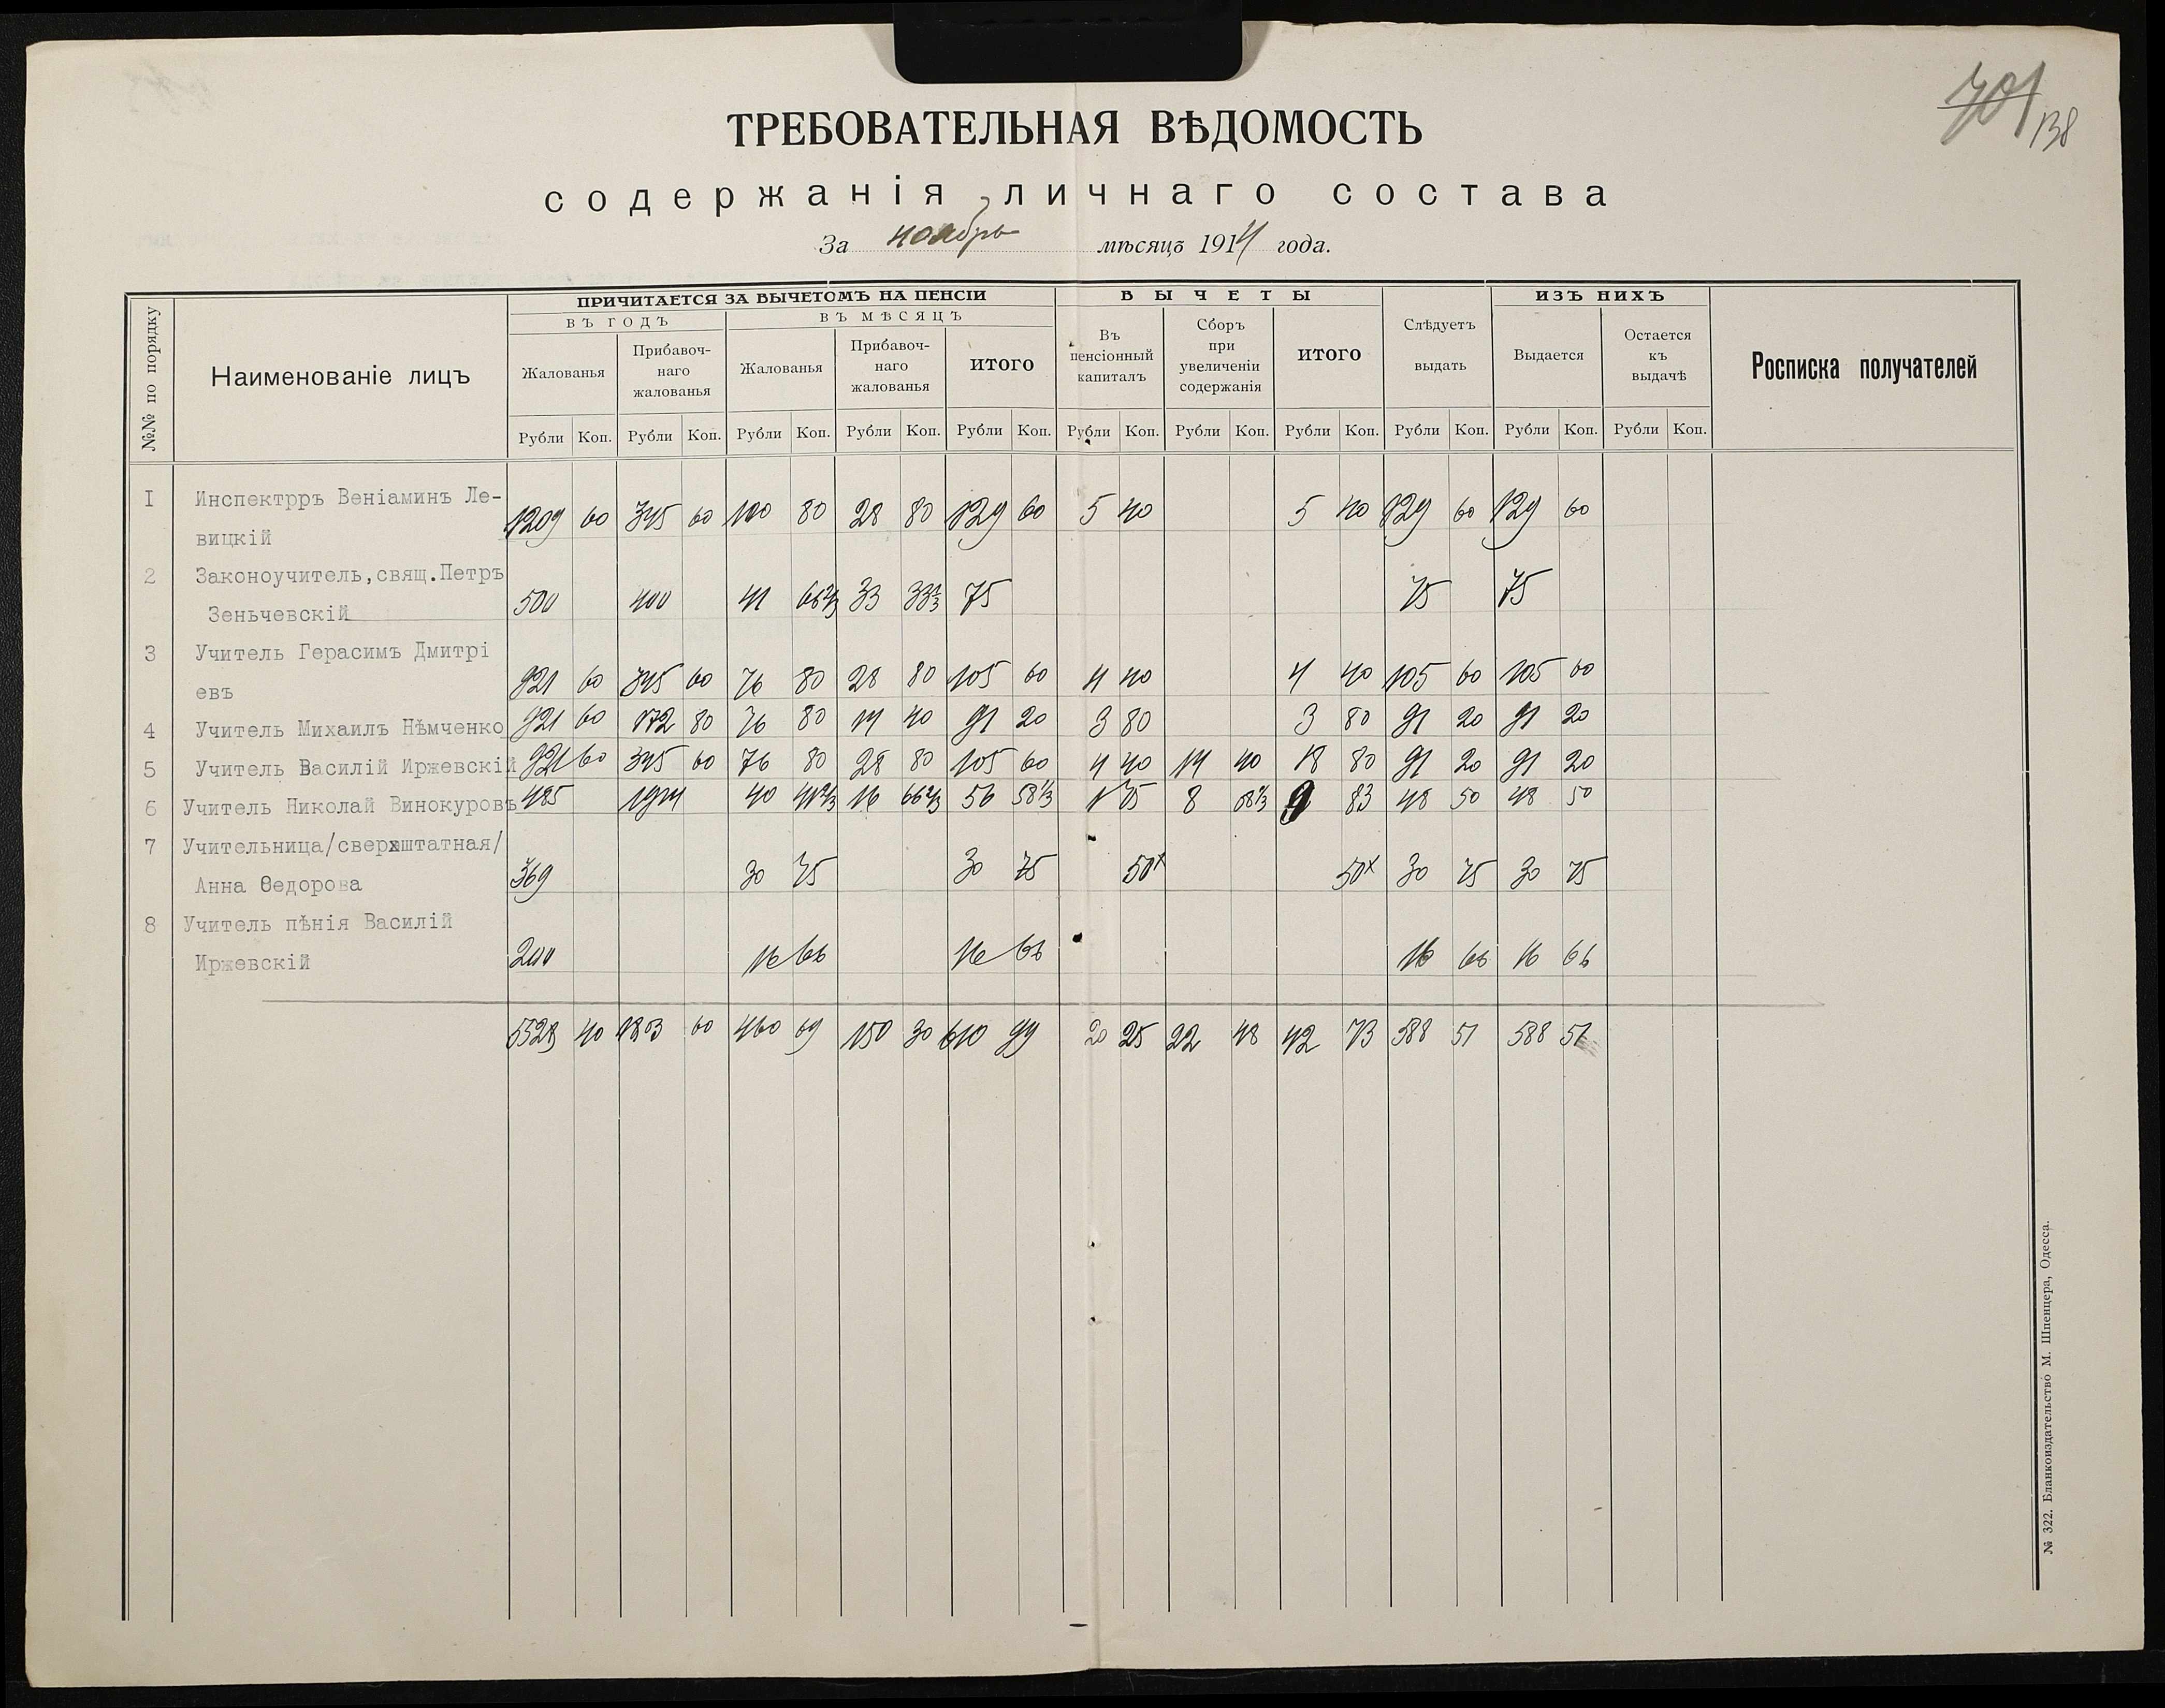 701
138
ТРЕБОВАТЕЛЬНАЯ ВѢДОМОСТЬ
содержанія личнаго состава
За ноябрь мѣсяцъ 1914 года.
№№ по порядку
Наименованіе лицъ
ПРИЧИТАЕТСЯ ЗА ВЫЧЕТОМЪ НА ПЕНСІИ
ВЪ ГОДЪ
ВЪ МѢСЯЦЪ
Жалованья
Прибавоч-
наго
жалованья
Жалованья
Прибавоч-
наго
жалованья
ИТОГО
ВЫЧЕТЫ
Въ
пенсіонный
капиталъ
Сборъ
при
увеличеніи
содержанія
ИТОГО
Слѣдуетъ
выдать
ИЗЪ НИХЪ
Выдается
Остается
къ
выдачѣ
Росписка получателей
Рубли Коп. Рубли Коп. Рубли Коп. Рубли Коп. Рубли Коп. Рубли Коп. Рубли Коп. Рубли Коп. Рубли Коп. Рубли Коп. Рубли Коп.
I Инспектрръ Веніаминъ Ле-
вицкій
1209 60 345 60 100 80 28 80 129 60 5 40 5 40 129 60 129 60
2 Законоучитель,свящ.Петръ
Зеньчевскій
500 400 41 66 2/3 33 33 1/3 75 75 75
3 Учитель Герасимъ Дмитрі
евъ
921 60 345 60 76 80 28 80 105 60 4 40 4 40 105 60 105 60
4 Учитель Михаилъ Нѣмченко 921 60 172 80 76 80 14 40 91 20 3 80 3 80 91 20 91 20
5 Учитель Василій Иржевскій 921 60 345 60 76 80 28 80 105 60 4 40 14 40 18 80 91 20 91 20
6 Учитель Николай Винокуровъ 485 194 40 41 2/3 16 66 2/3 56 58 1/3 1 75 8 08 1/3 9 83 48 50 48 50
7 Учительница/сверхштатная/
Анна Ѳедорова
369 30 75 30 75 50× 50× 30 75 30 75
8 Учитель пѣнія Василій
Иржевскій
200 16 66 16 66 16 66 16 66
5528 40 1803 60 460 69 150 30 610 99 20 25 22 48 42 73 588 51 588 51
№ 322. Бланкоиздательство М. Шпенцера, Одесса.